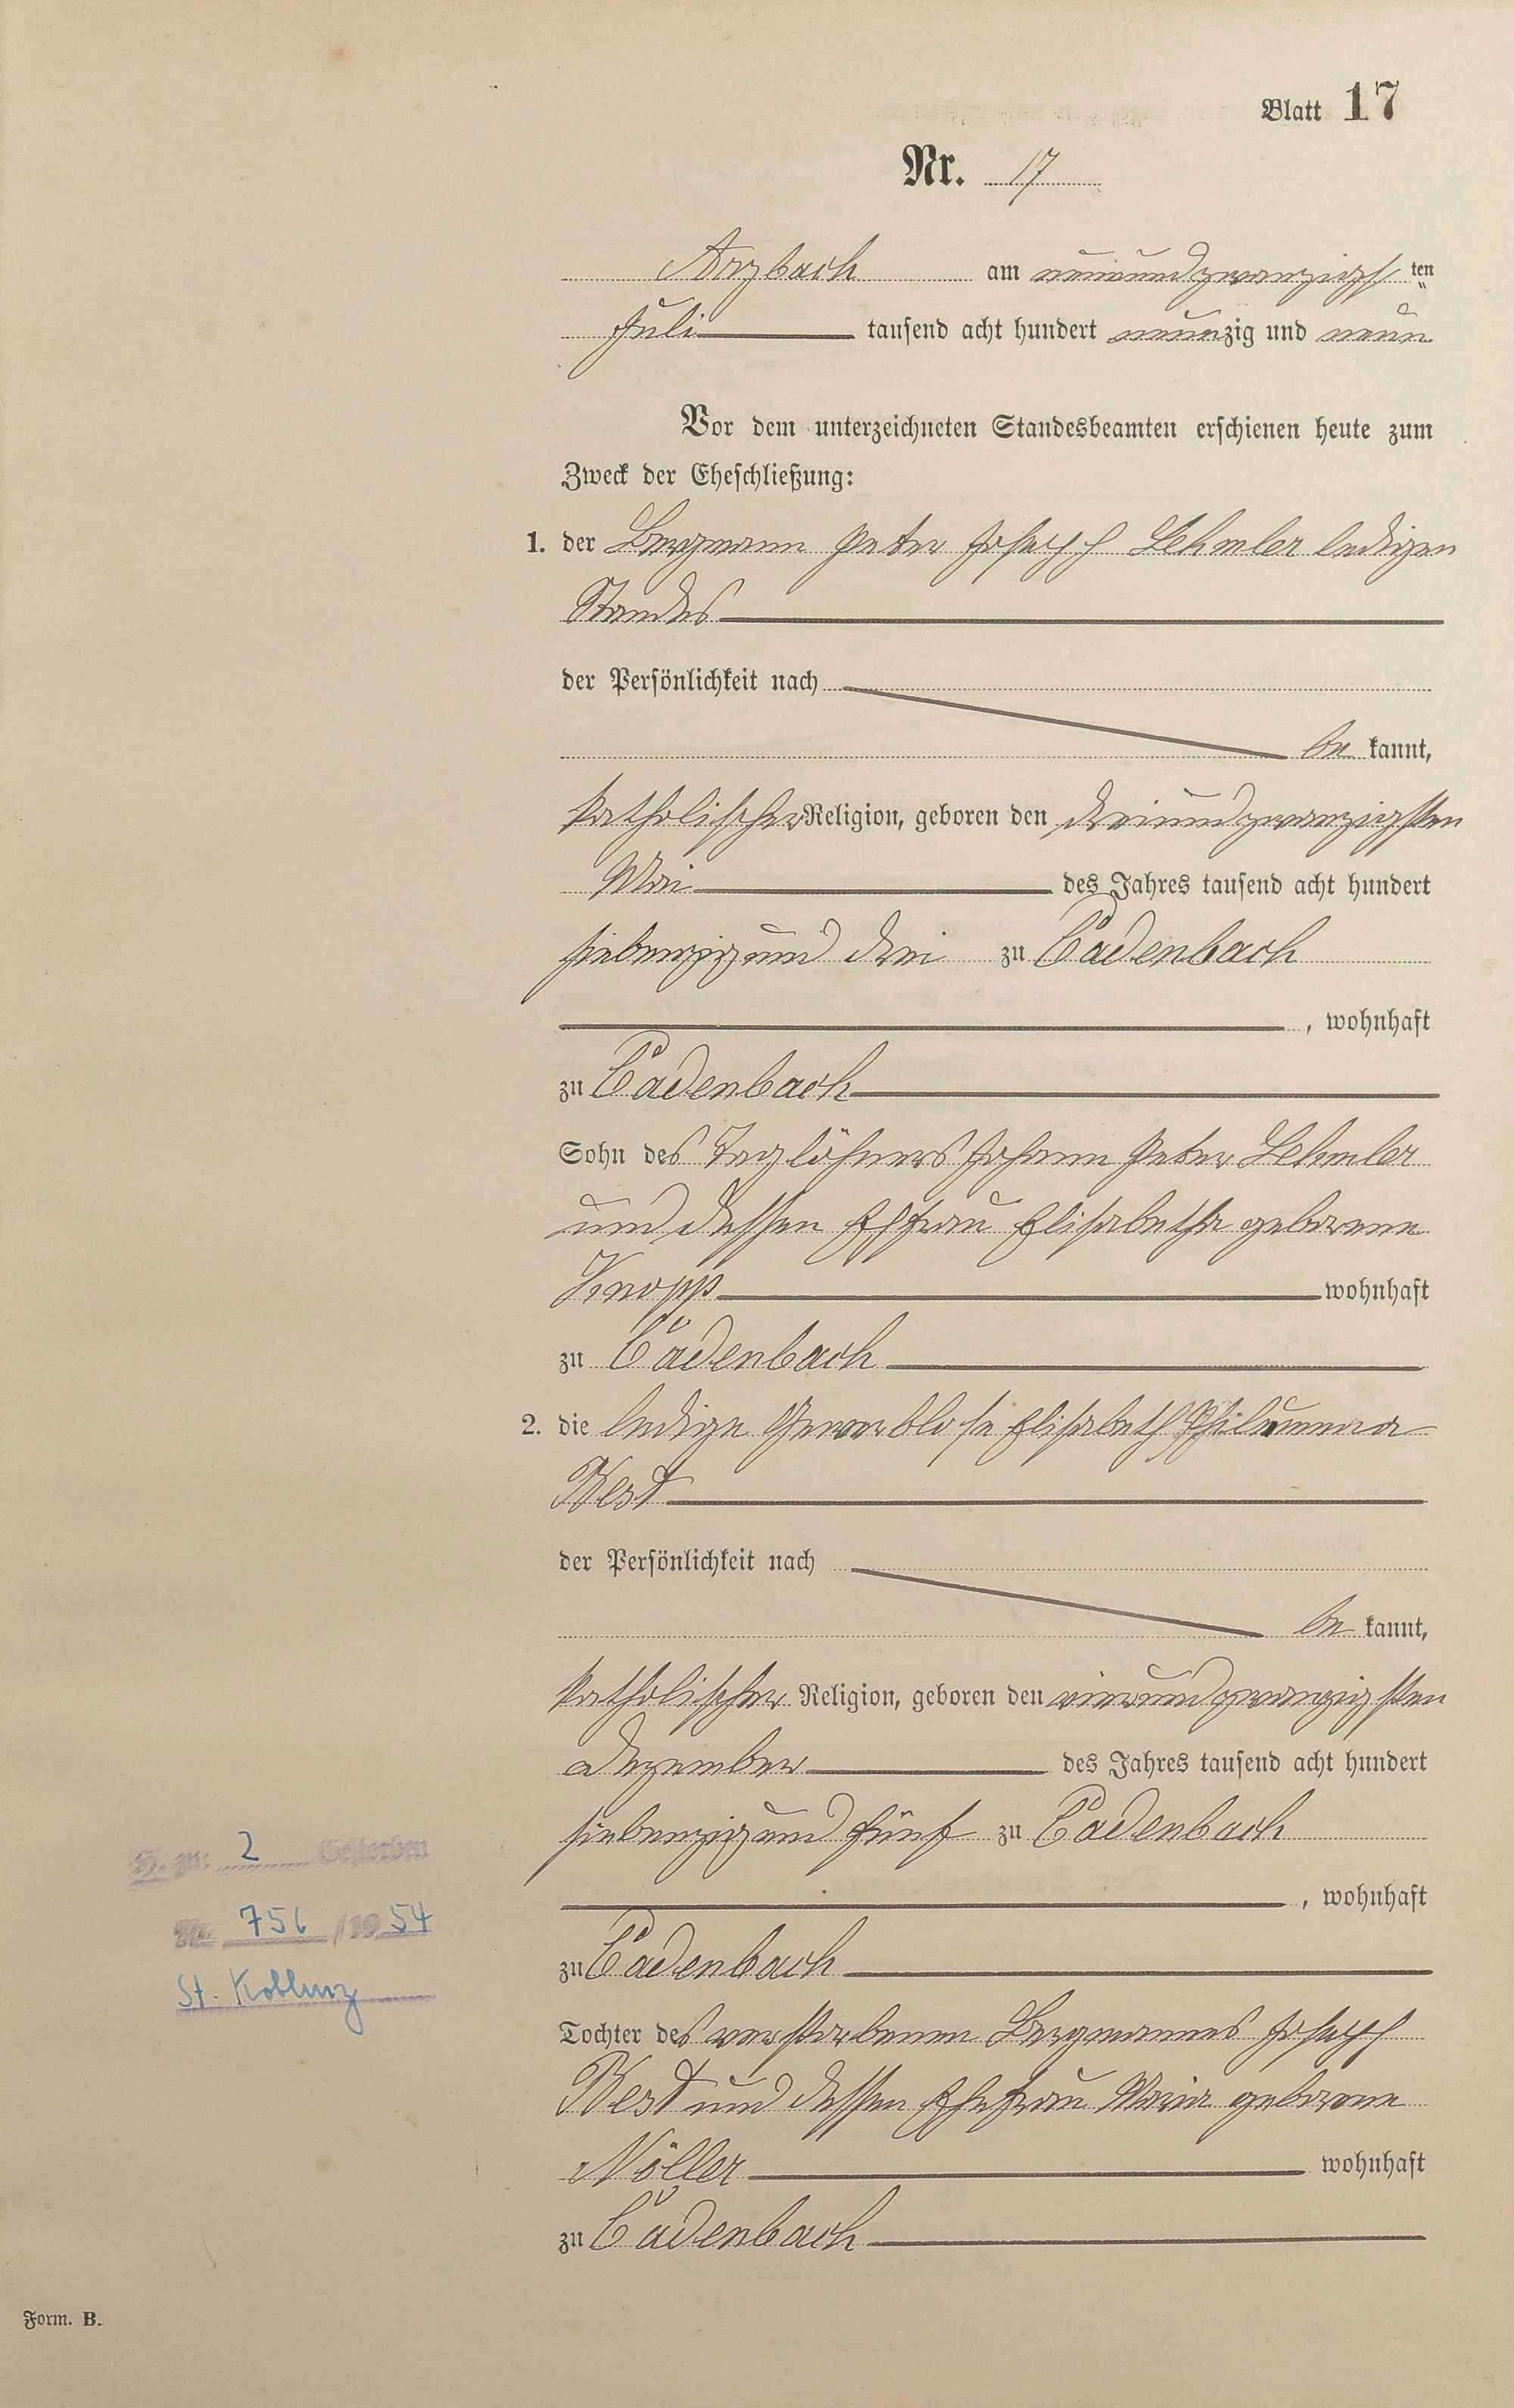 Blatt 17
Nr. 17
Arzbach am neunundzwanzigsten
Juli tausend acht hundert neunzig und neun
Vor dem unterzeichneten Standesbeamten erschienen heute zum
Zweck der Eheschließung:
1. der Bergmann Peter Joseph Lehmler ledigen
Standes
der Persönlichkeit nach
be kannt,
katholischer Religion, geboren den dreiundzwanzigsten
Mai des Jahres tausend acht hundert
siebenzig und drei zu Cadenbach
, wohnhaft
zu Cadenbach
Sohn des Taglöhners Johann Peter Lehmler
und dessen Ehfrau Elisabetha geborene
Knopp wohnhaft
zu Cadenbach
2. die ledige Gewerblose Elisabeth Philumena
Best
der Persönlichkeit nach
be kannt,
katholischer Religion, geboren den vierundzwanzigsten
Dezember des Jahres tausend acht hundert
siebenzig und fünf zu Cadenbach
, wohnhaft
zu Cadenbach
Tochter des verstorbenen Bergmannes Joseph
Best und dessen Ehefrau Maria geborene
Nöller wohnhaft
zu Cadenbach
H. zu: 2 Gestorben
Nr. 756 /1954
St. Koblenz
Form. B.